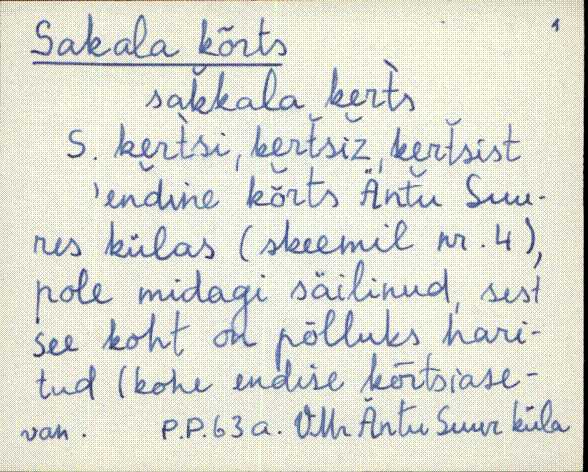 1
Sakala kõrts
sak̆kala kert̀s
S. kert̀si, kert̆siž, kert̆sist
'end̆ine kõrts Äntu Suu-
res külas (skeemil nr. 4),
pole midagi säilinud, sest
see koht on põlluks hari-
tud (kohe endise kõrtsiase-
van. P.P. 63 a. VMr Äntu Suur küla